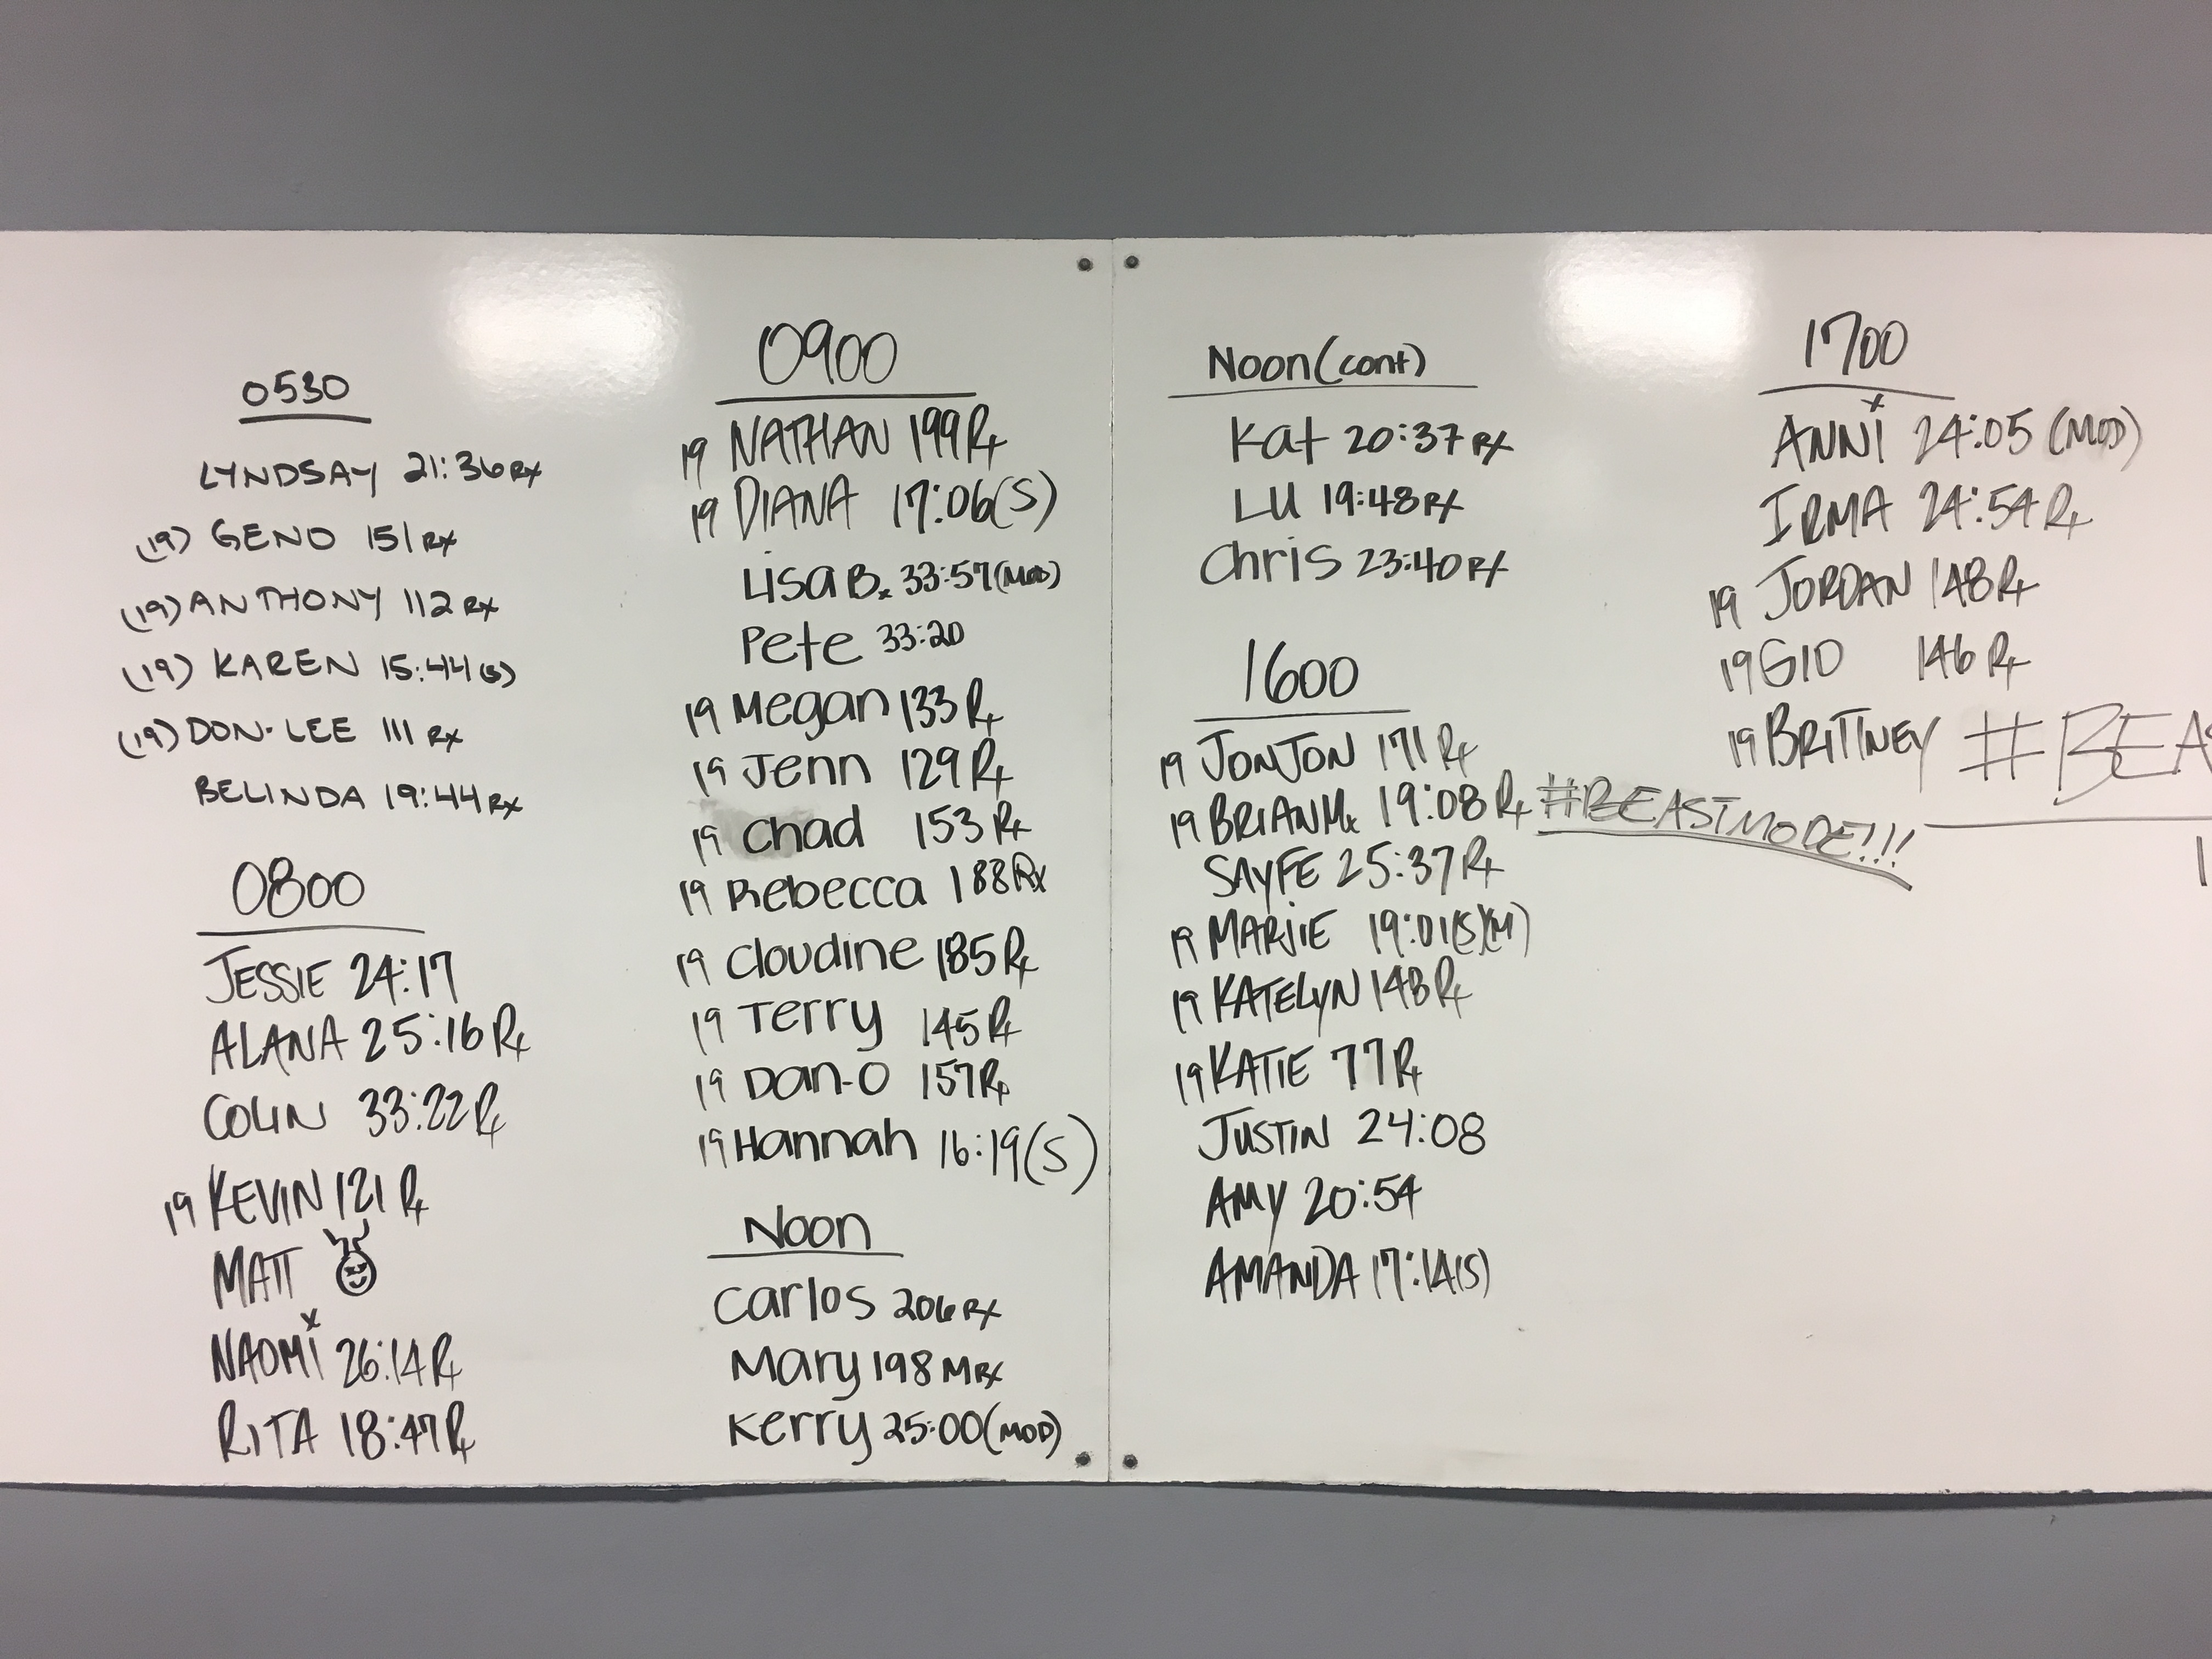 0530
LYNDSAY 21:36 RX
(19) GENO 151 RX
(19) ANTHONY 112 RX
(19) KAREN 15:44 (S)
(19) DON-LEE 111 RX
BELINDA 19:44 RX
0800
JESSIE 24:17
ALANA 25:16 RX
COLIN 33:22 RX
19 KEVIN 121 RX
MATT
NAOMI 26:14 RX
RITA 18:47 RX
0900
19 NATHAN 199 RX
19 DIANA 17:06 (S)
Lisa B. 33:57 (MOD)
Pete 33:20
19 Megan 133 RX
19 Jenn 129 RX
19 Chad 153 RX
19 Rebecca 188 RX
19 Cloudine 185 RX
19 Terry 145 RX
19 Dan-O 157 RX
19 Hannah 16:19 (S)
Noon
Carlos 206 RX
Mary 198 MRX
Kerry 25:00 (MOD)
Noon (cont)
Kat 20:37 RX
LU 19:48 RX
Chris 23:40 RX
1600
19 JONJON 171 RX
19 BRIAN M. 19:08 RX #BEASTMODE!!!
SAYFE 25:37 RX
19 MARJIE 19:01 (S)(M)
19 KATELYN 148 RX
19 KATIE 77 RX
JUSTIN 24:08
AMY 20:54
AMANDA 17:14 (S)
1700
ANNI 24:05 (MOD)
IRMA 24:54 RX
19 JORDAN 148 RX
19 GIO 146 RX
19 BRITTNEY #BEAS